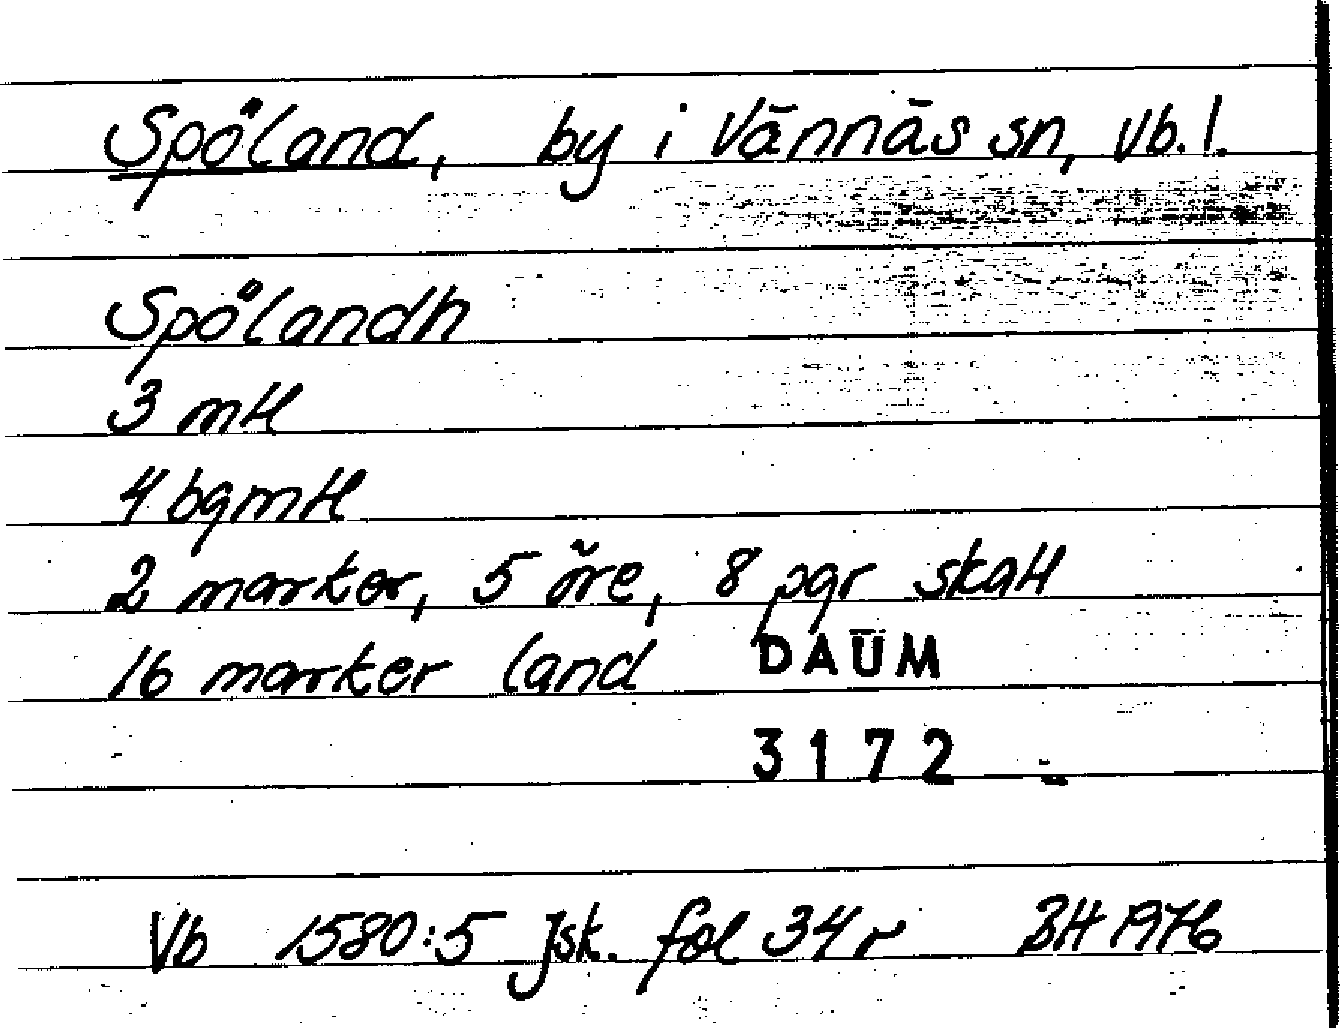 Spöland, by i Vännäs sn, Vb. l.
Spölandh
3 mtl
4 bgmtl
2 marker, 5 öre, 8 pgr skatt
16 marker land
DAUM
3172
Vb 1580:5 Jsk. fol 34 r BH 1976